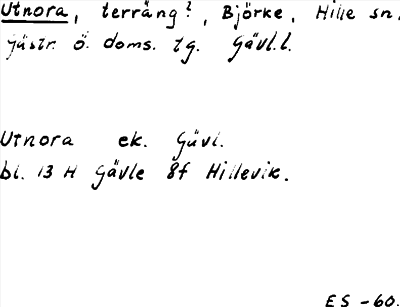 Utnora, terräng?, Björke, Hille sn.
Gästr. Ö. doms. tg. Gävl.l.
Utnora ek. Gävl.
bl. 13 H Gävle 8f Hillevik.
ES -60.